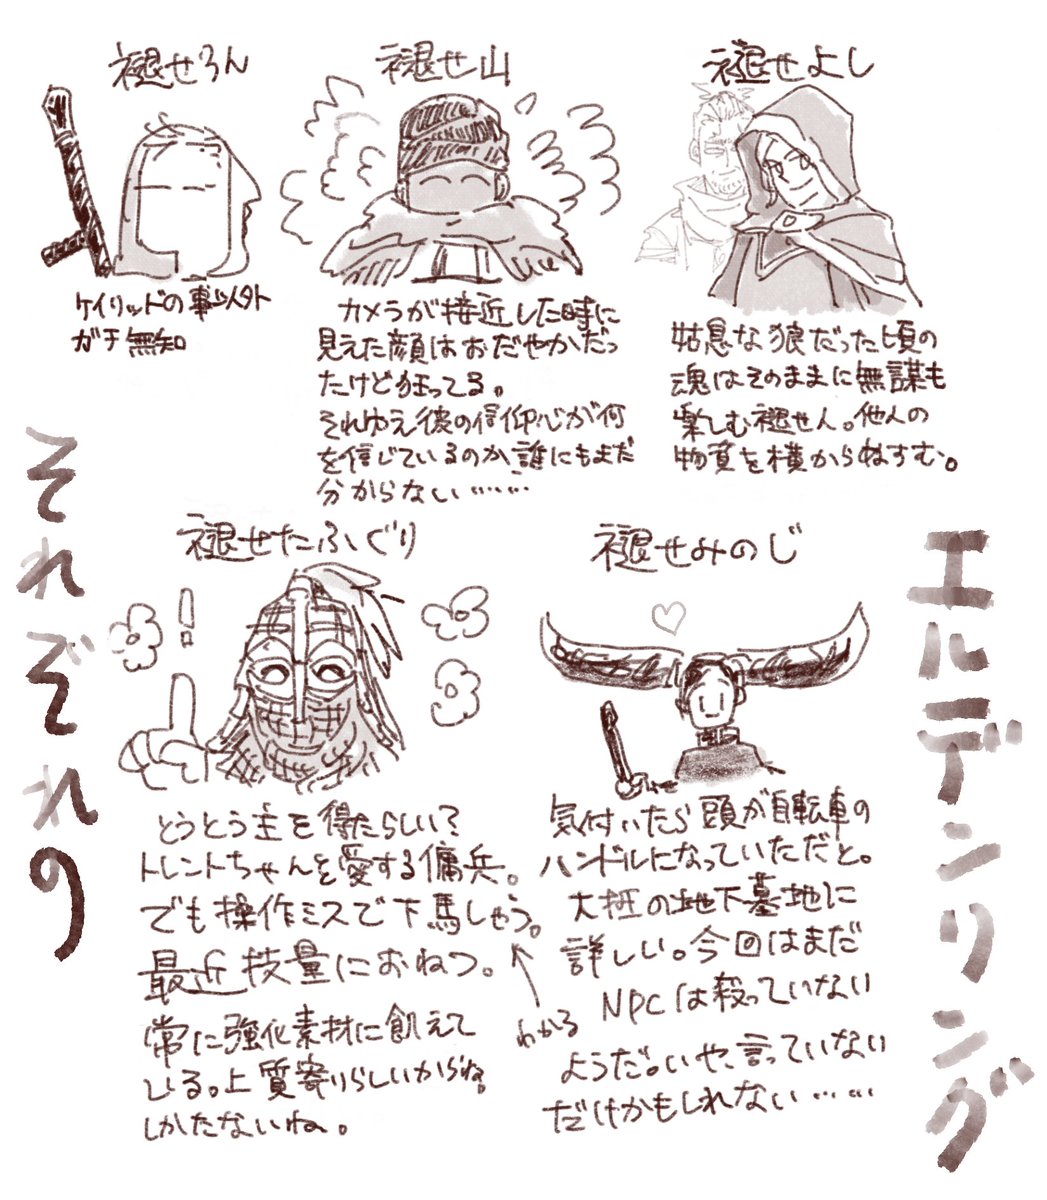 褪せろん
ケイリッドの事以外
ガチ無知
褪せ山
カメラが接近した時に
見えた顔はおだやかだっ
たけど狂ってる。
それゆえ彼の信仰心が何
を信じているのか誰にもまだ
分からない……
褪せよし
姑息な狼だった頃の
魂はそのままに無謀も
楽しむ褪せ人。他人の
物資を横からねすむ。
褪せたふぐり
!
とうとう主を得たらしい?
トレントちゃんを愛する傭兵。
でも操作ミスで下馬しちゃう。
最近技量におねつ。
常に強化素材に飢えて
いる。上質寄りらしいからね。
しかたないね。
わかる
褪せみのじ
気付いたら頭が自転車の
ハンドルになっていただと。
大抵の地下墓地に
詳しい。今回はまだ
NPCは殺っていない
ようだ。いや、言っていない
だけかもしれない……
エルデンリング
それぞれの